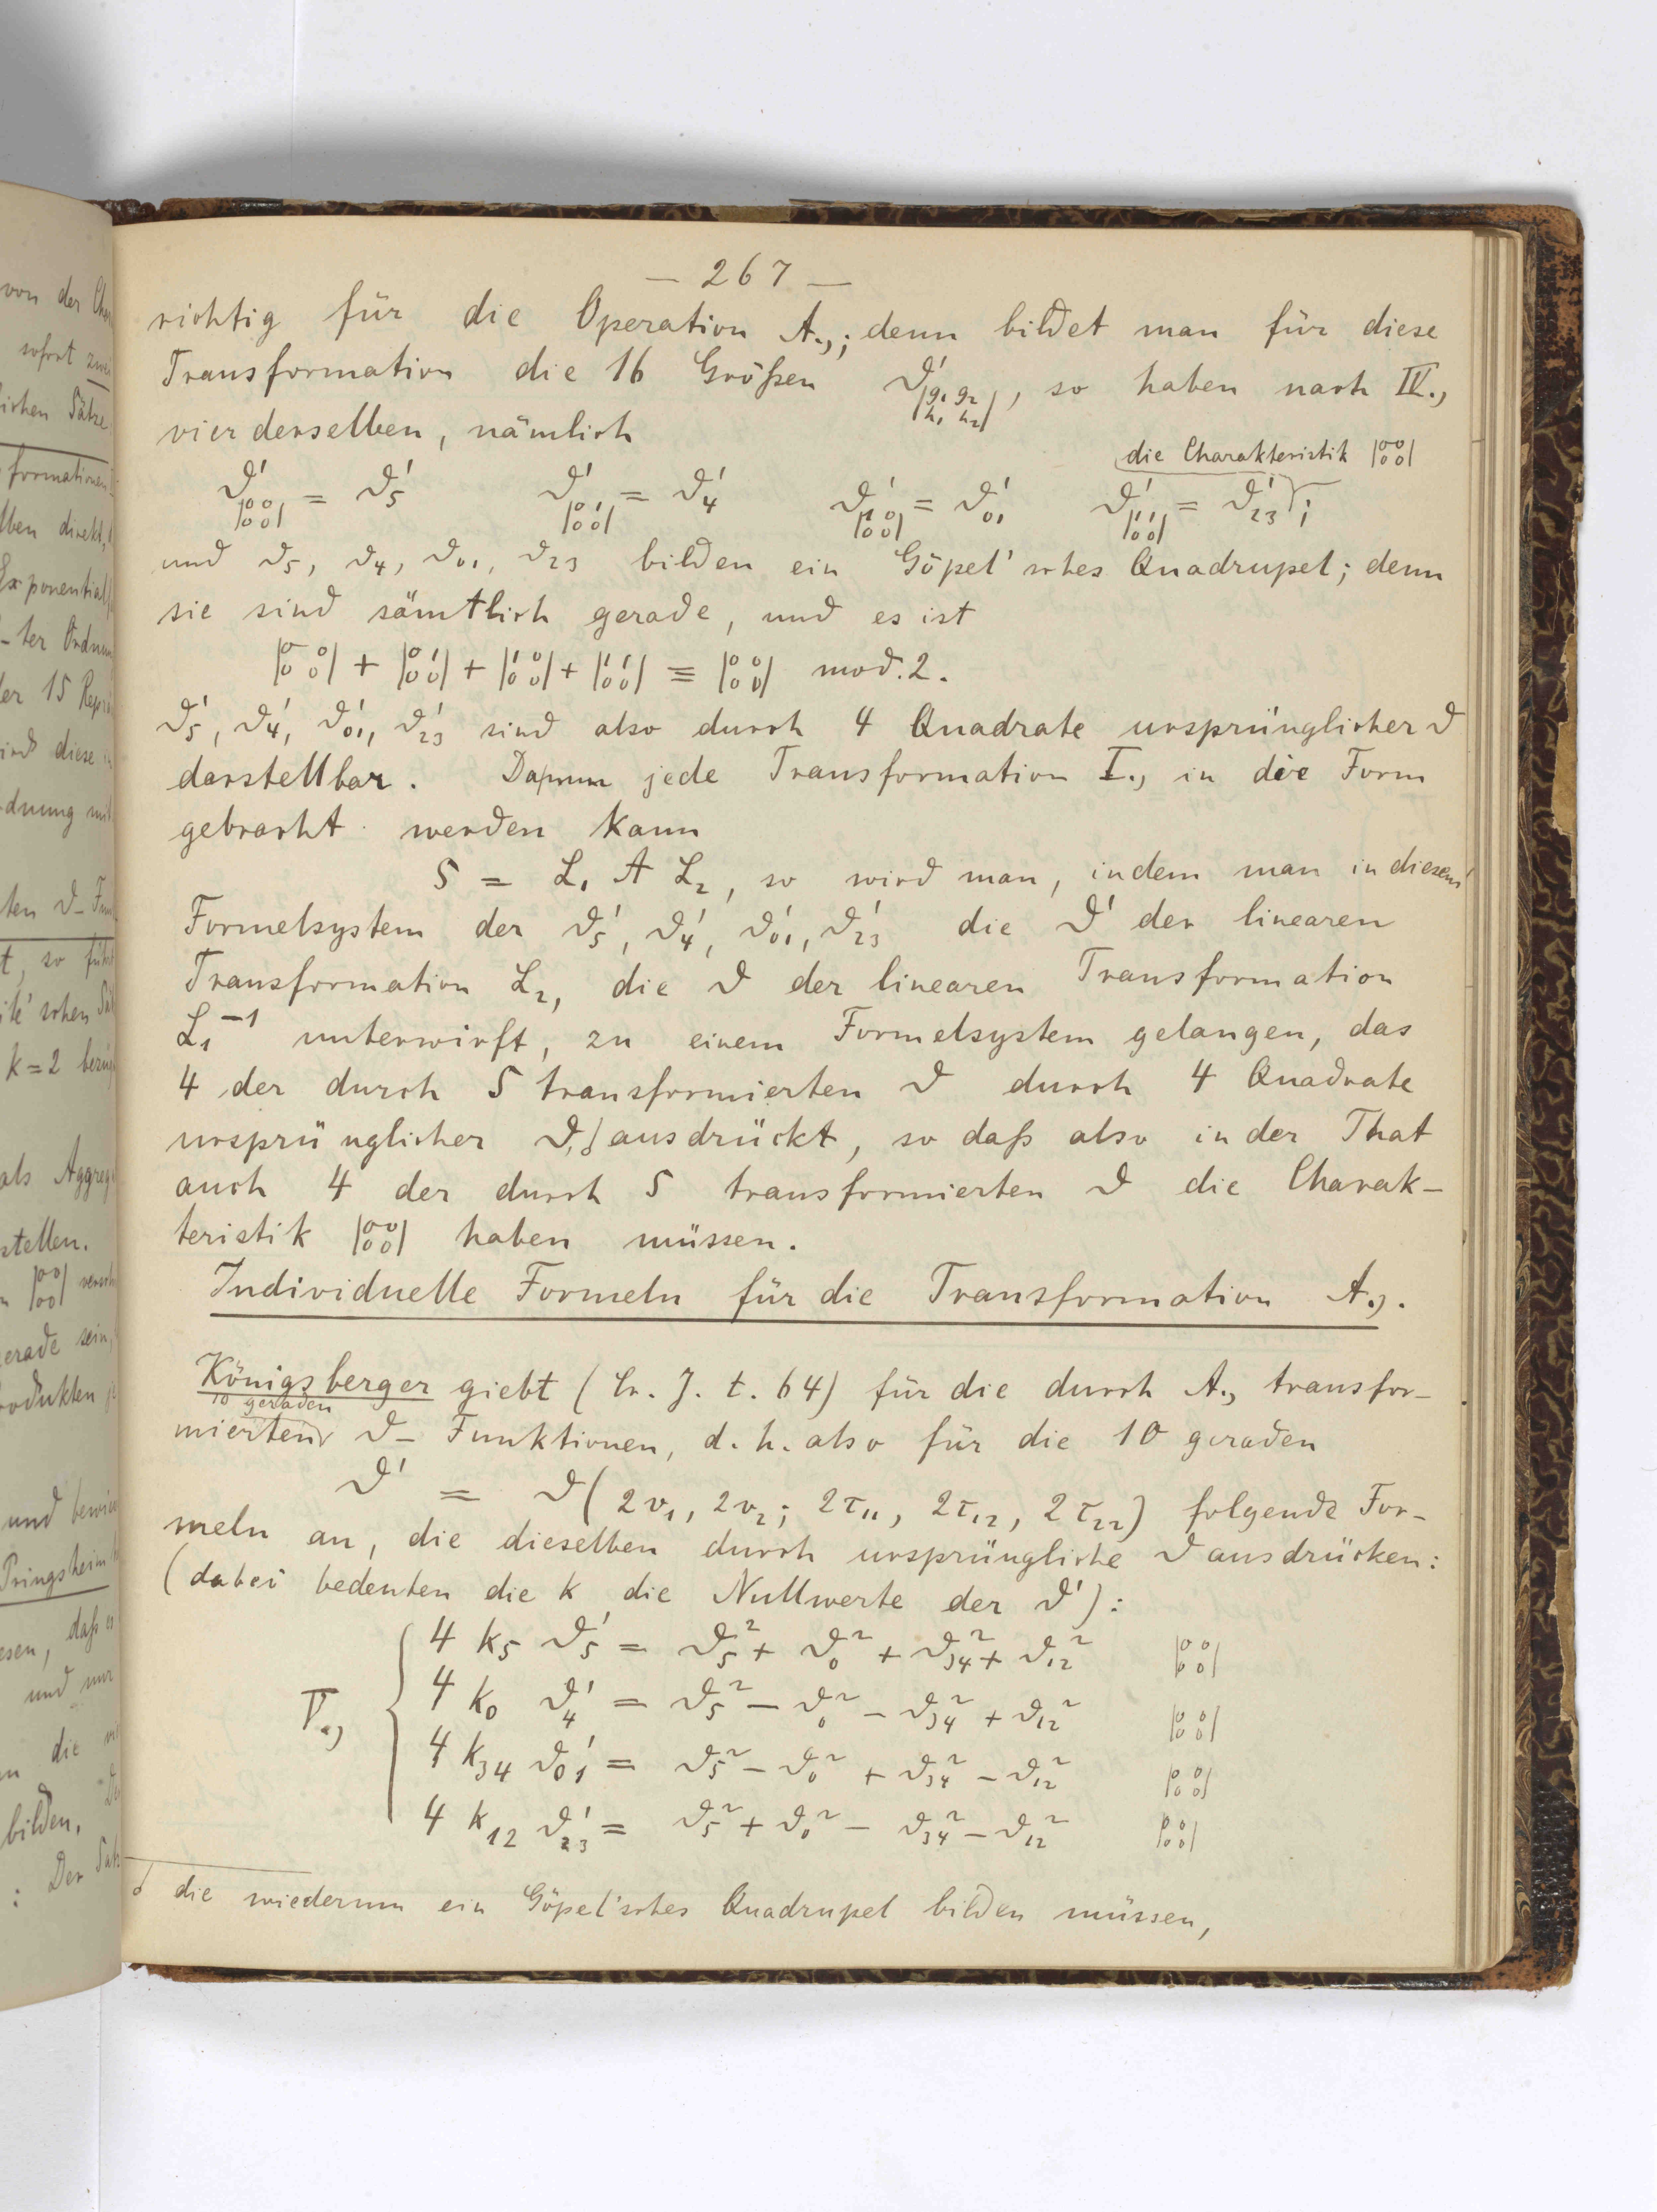 von der Cha
— 267 —
richtig für die Operation A.,; denn bildet man für diese
Transformation die 16 Größen ϑ'|g₁ g₂ / h₁ h₂|, so haben nach IV.,
vier derselben, nämlich
die Charakteristik |00/00|
ϑ'|00/00| = ϑ'₅ ϑ'|01/00| = ϑ'₄ ϑ'|10/00| = ϑ'₀₁ ϑ'|11/00| = ϑ'₂₃ ;
und ϑ₅, ϑ₄, ϑ₀₁, ϑ₂₃ bilden ein Göpel'sches Quadrupel; denn
sie sind sämtlich gerade, und es ist
|00/00| + |01/00| + |10/00| + |11/00| ≡ |00/00| mod. 2.
ϑ'₅, ϑ'₄, ϑ'₀₁, ϑ'₂₃ sind also durch 4 Quadrate ursprünglicher ϑ
darstellbar. jede Transformation I., in die Form
gebracht werden kann
S = L₁ A L₂, so wird man, indem man in diesem
Formelsystem der ϑ'₅, ϑ'₄, ϑ'₀₁, ϑ'₂₃ die ϑ' der linearen
Transformation L₂, die ϑ der linearen Transformation
L₁⁻¹ unterwirft, zu einem Formelsystem gelangen, das
4 der durch S transformierten ϑ durch 4 Quadrate
ursprünglicher ϑ, ausdrückt, so daß also in der That
auch 4 der durch S transformierten ϑ die Charak-
teristik |00/00| haben müssen.
Individuelle Formeln für die Transformation A.,.
Königsberger giebt (Cr. J. t. 64) für die durch A., transfor-
10 geraden
mierten ϑ- Funktionen, d. h. also für die 10 geraden
ϑ' = ϑ(2v₁, 2v₂; 2τ₁₁, 2τ₁₂, 2τ₂₂) folgende For-
meln an, die dieselben durch ursprüngliche ϑ ausdrücken:
(dabei bedeuten die k die Nullwerte der ϑ'):
4 k₅ ϑ'₅ = ϑ₅² + ϑ₀² + ϑ₃₄² + ϑ₁₂² |00/00|
V., 4 k₀ ϑ'₄ = ϑ₅² − ϑ₀² − ϑ₃₄² + ϑ₁₂² |00/00|
4 k₃₄ ϑ'₀₁ = ϑ₅² − ϑ₀² + ϑ₃₄² − ϑ₁₂² |00/00|
4 k₁₂ ϑ'₂₃ = ϑ₅² + ϑ₀² − ϑ₃₄² − ϑ₁₂² |00/00|
die wiederum ein Göpel'sches Quadrupel bilden müssen,